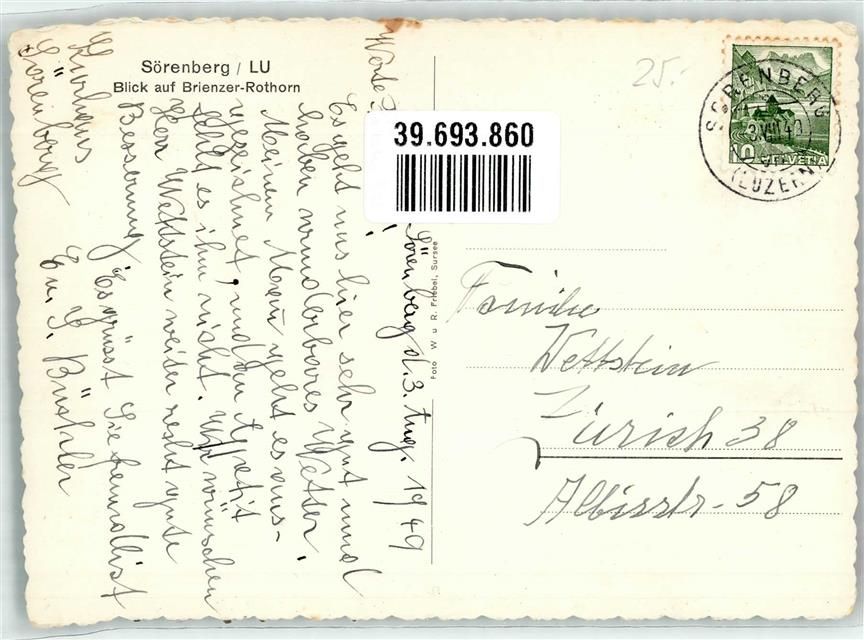 Sörenberg / LU
Blick auf Brienzer-Rothorn
39.693.860
25.-
SÖRENBERG
3.VIII.49
(LUZERN)
10 HELVETIA
Foto W. u R. Friebel, Sursee
Familie
Wettstein
Zürich 38
Albisstr- 58
Sörenberg d. 3. Aug. 1949
Werte
Es geht uns hier sehr gut und
haben wunderbares Wetter.
Meinem Mann geht es aus-
gezeichnet, und an Apetit
fehlt es ihm nicht. Wir wünschen
Herr Wettstein weiter recht gute
Besserung. Es grüsst Sie freundlist
E u. S. Büchler
Kurhaus
Sörenberg